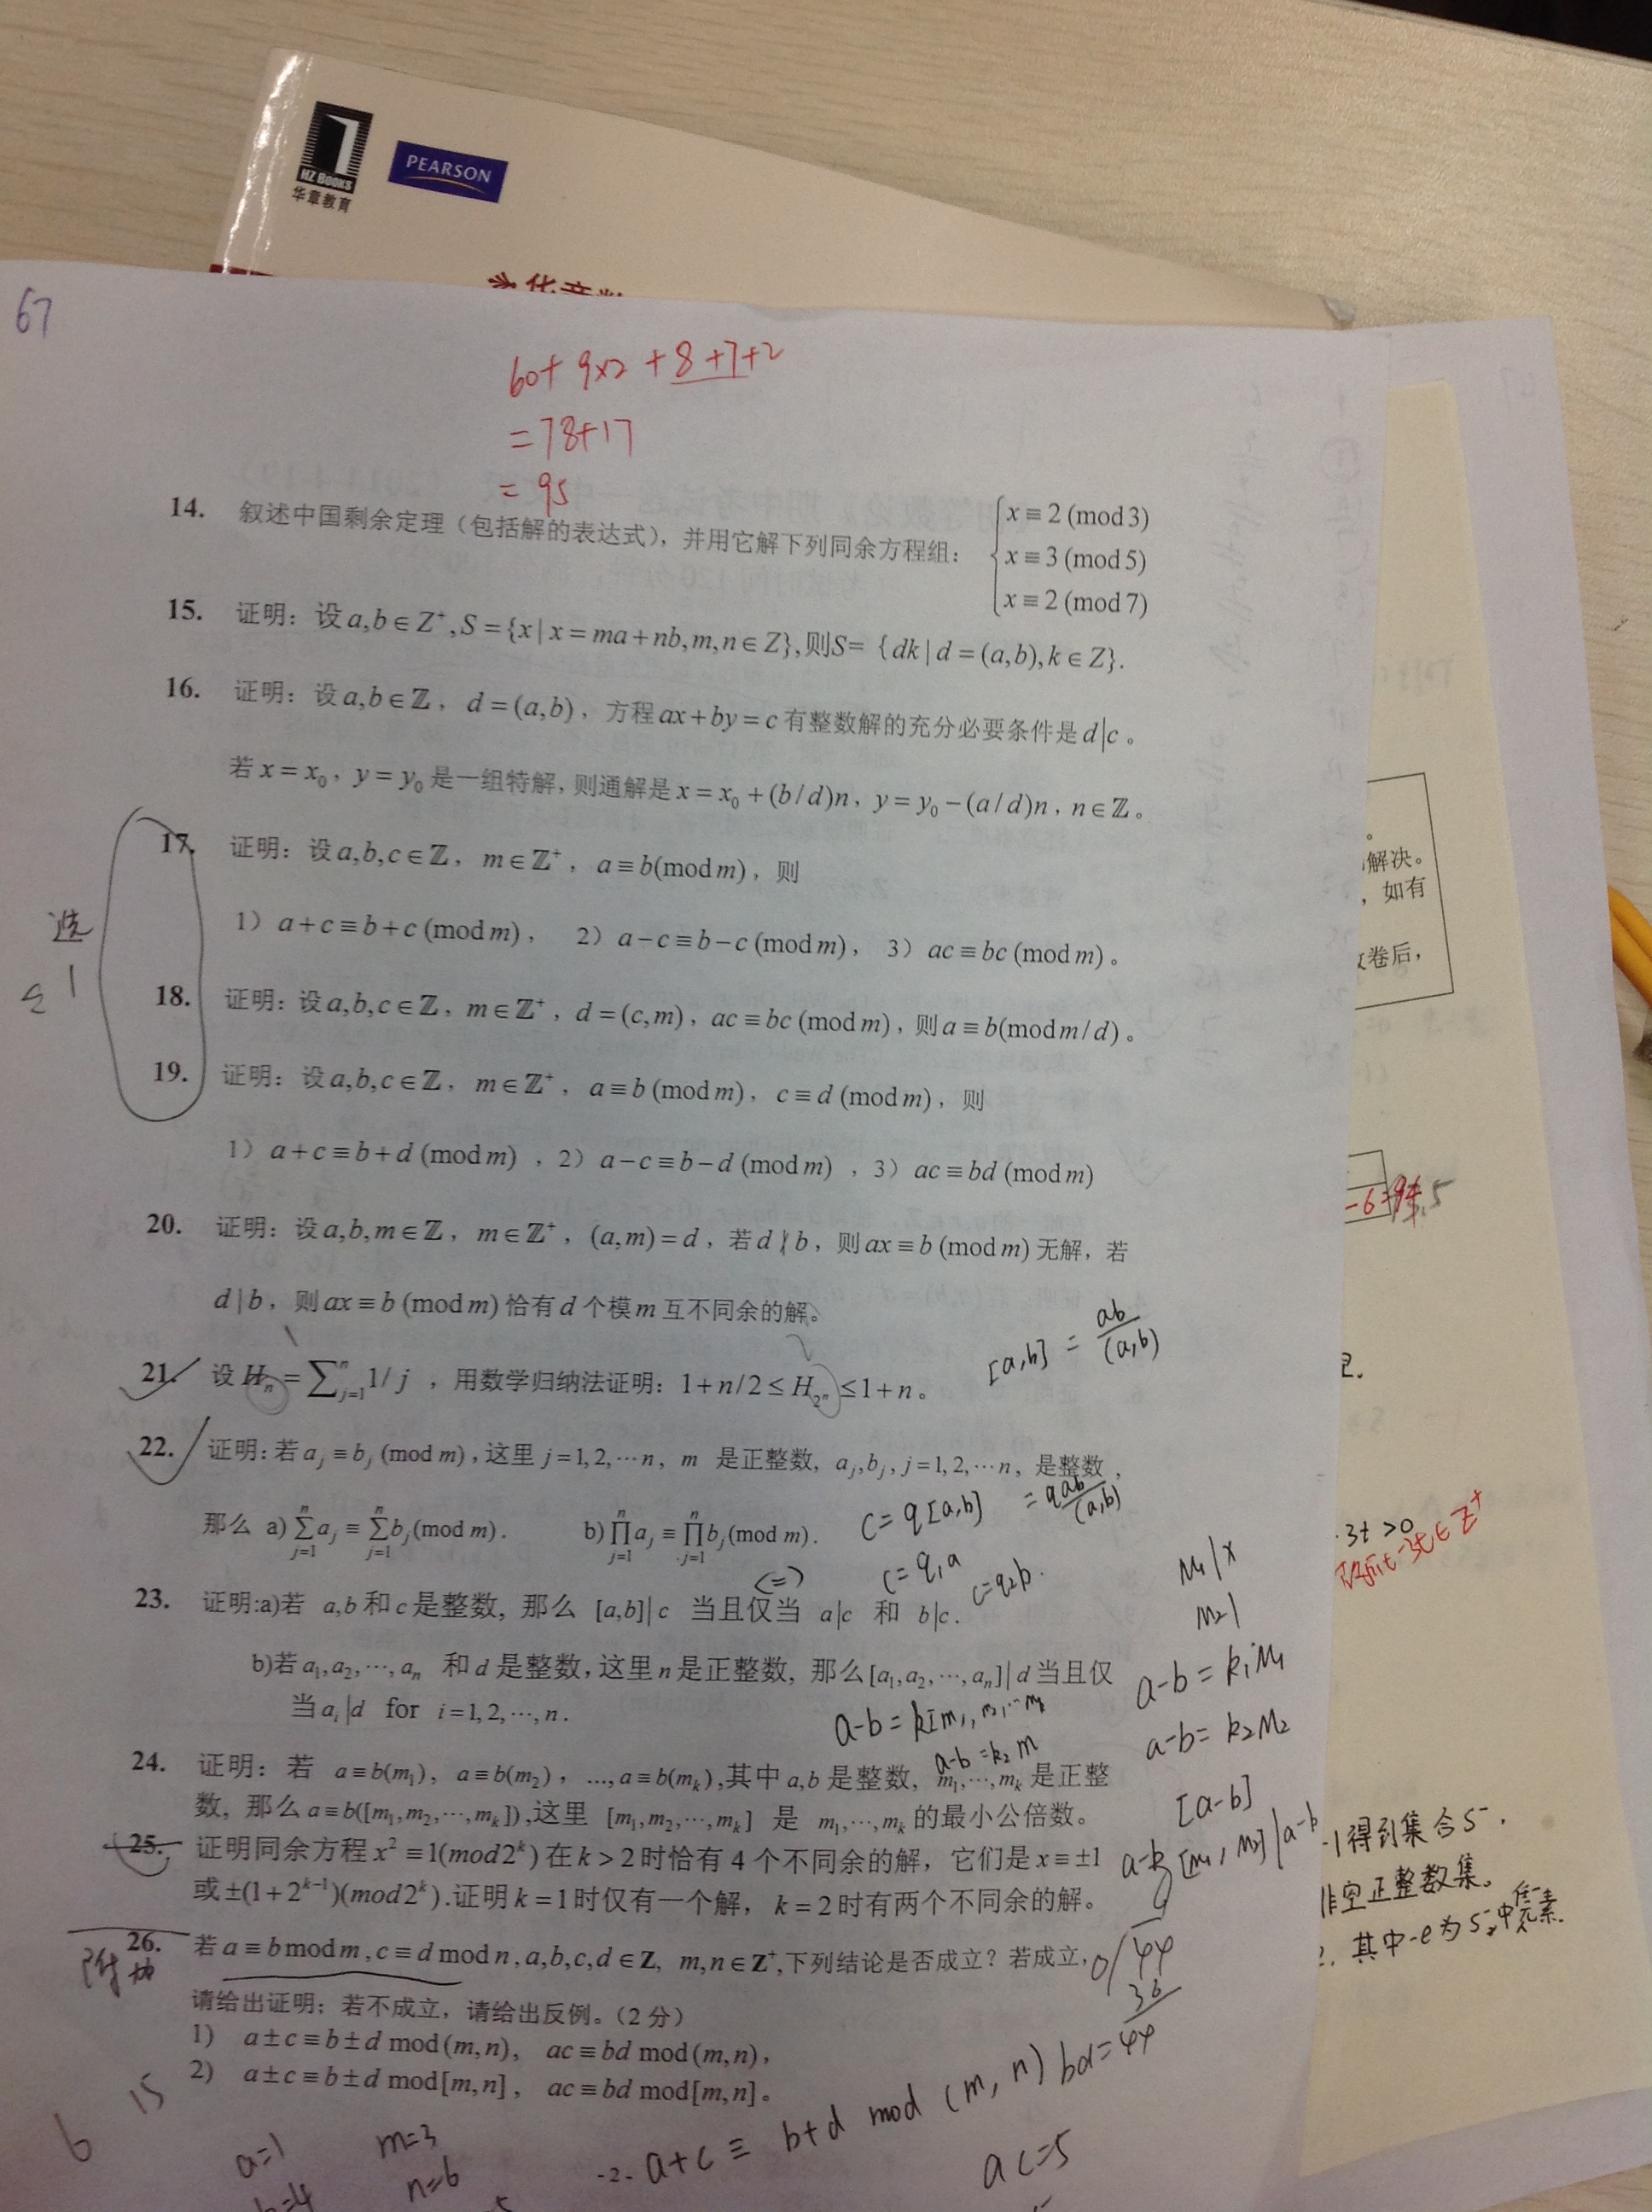 HZ BOOKS
华章教育
PEARSON
67
60+9×2+8+7+2
=78+17
=95
14. 叙述中国剩余定理（包括解的表达式），并用它解下列同余方程组：
x≡2(mod3)
x≡3(mod5)
x≡2(mod7)
15. 证明：设a,b∈Z⁺,S={x|x=ma+nb,m,n∈Z},则S={dk|d=(a,b),k∈Z}.
16. 证明：设a,b∈ℤ，d=(a,b)，方程ax+by=c有整数解的充分必要条件是d|c。
若x=x₀，y=y₀是一组特解，则通解是x=x₀+(b/d)n，y=y₀-(a/d)n，n∈ℤ。
17. 证明：设a,b,c∈ℤ，m∈ℤ⁺，a≡b(modm)，则
1）a+c≡b+c(modm)， 2）a-c≡b-c(modm)， 3）ac≡bc(modm)。
选
1
18. 证明：设a,b,c∈ℤ，m∈ℤ⁺，d=(c,m)，ac≡bc(modm)，则a≡b(modm/d)。
19. 证明：设a,b,c∈ℤ，m∈ℤ⁺，a≡b(modm)，c≡d(modm)，则
1）a+c≡b+d(modm)，2）a-c≡b-d(modm)，3）ac≡bd(modm)
20. 证明：设a,b,m∈ℤ，m∈ℤ⁺，(a,m)=d，若d∤b，则ax≡b(modm)无解，若
d|b，则ax≡b(modm)恰有d个模m互不同余的解。
[a,b]=ab/(a,b)
21. 设Hₙ=∑ⁿⱼ₌₁1/j，用数学归纳法证明：1+n/2≤H_{2ⁿ}≤1+n。
22. 证明：若aⱼ≡bⱼ(mod m)，这里j=1,2,⋯n，m 是正整数，aⱼ,bⱼ,j=1,2,⋯n，是整数，
那么 a)∑ⁿⱼ₌₁aⱼ≡∑ⁿⱼ₌₁bⱼ(mod m). b)∏ⁿⱼ₌₁aⱼ≡∏ⁿⱼ₌₁bⱼ(mod m).
c=q[a,b] =qab/(a,b)
c=q₁a c=q₂b.
(<=)
23. 证明:a)若 a,b和c是整数，那么 [a,b]|c 当且仅当 a|c 和 b|c.
b)若a₁,a₂,⋯,aₙ 和d是整数，这里n是正整数，那么[a₁,a₂,⋯,aₙ]|d当且仅
当aᵢ|d for i=1,2,⋯,n.
M₁|x
M₂|
a-b=k₁M₁
a-b=k₂M₂
a-b=k[m₁,m₂,⋯mₖ
a-b=k₂m
24. 证明：若 a≡b(m₁)，a≡b(m₂)，...,a≡b(mₖ),其中a,b是整数，m₁,⋯,mₖ是正整
数，那么a≡b([m₁,m₂,⋯,mₖ]),这里 [m₁,m₂,⋯,mₖ] 是 m₁,⋯,mₖ的最小公倍数。
[a-b]
[m₁,m₂]|a-b
25. 证明同余方程x²≡1(mod2ᵏ)在k>2时恰有4个不同余的解，它们是x≡±1
或±(1+2ᵏ⁻¹)(mod2ᵏ).证明k=1时仅有一个解，k=2时有两个不同余的解。
附加
26. 若a≡bmodm,c≡dmodn,a,b,c,d∈Z, m,n∈Z⁺,下列结论是否成立？若成立，
请给出证明；若不成立，请给出反例。（2分）
1) a±c≡b±d mod(m,n)， ac≡bd mod(m,n)，
2) a±c≡b±d mod[m,n]， ac≡bd mod[m,n]。
44
36
bd=44
6 15
a=1 m=3
b=4 n=6
-2-
a+c≡b+d mod (m,n)
ac=5
。
解决。
，如有
卷后，
3t>0
-3t∈Z⁺
-1得到集合S⁻.
非空正整数集。
其中-e为S⁻中元素.